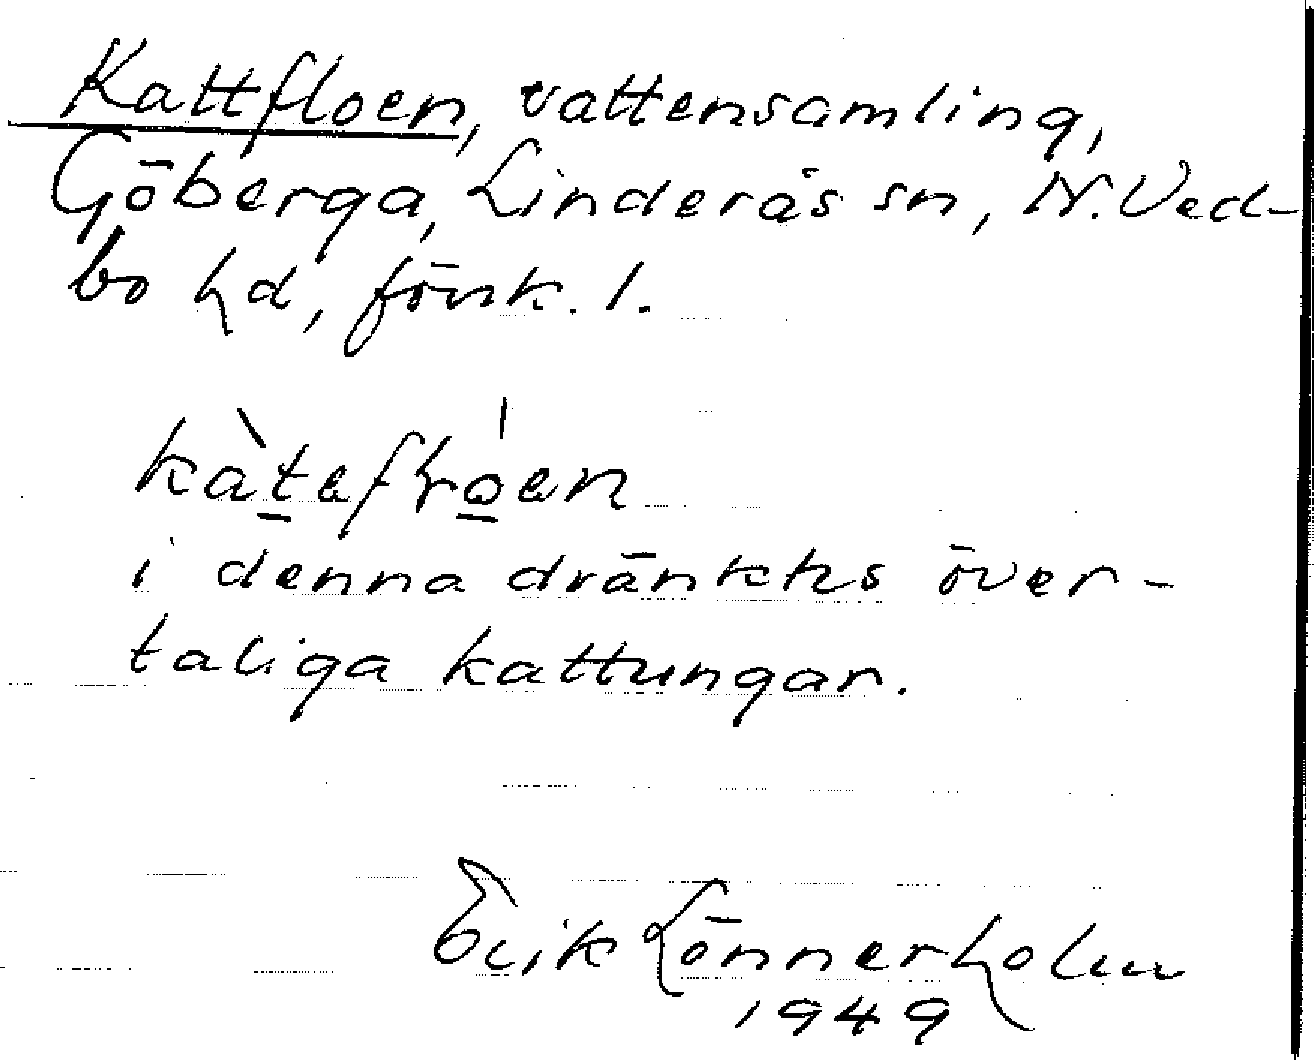 Kattfloen, vattensamling,
Göberga, Linderås sn, N. Ved-
bo hd, försk. 1.
i denna dränktes över-
taliga kattungar.
Erik Lönnerholm
1949